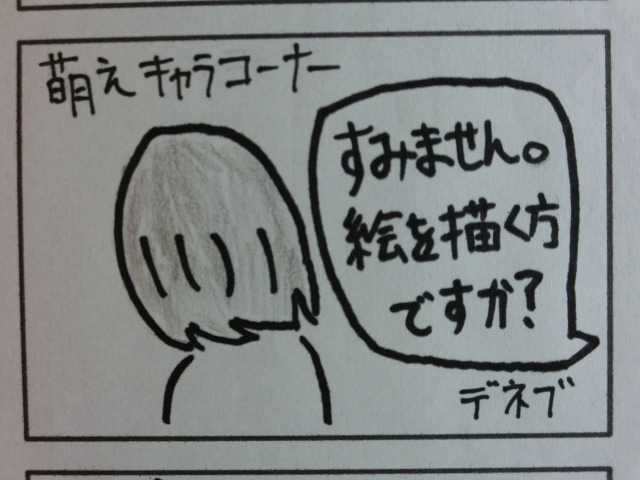 萌えキャラコーナー
すみません。
絵を描く方
ですか?
デネブ